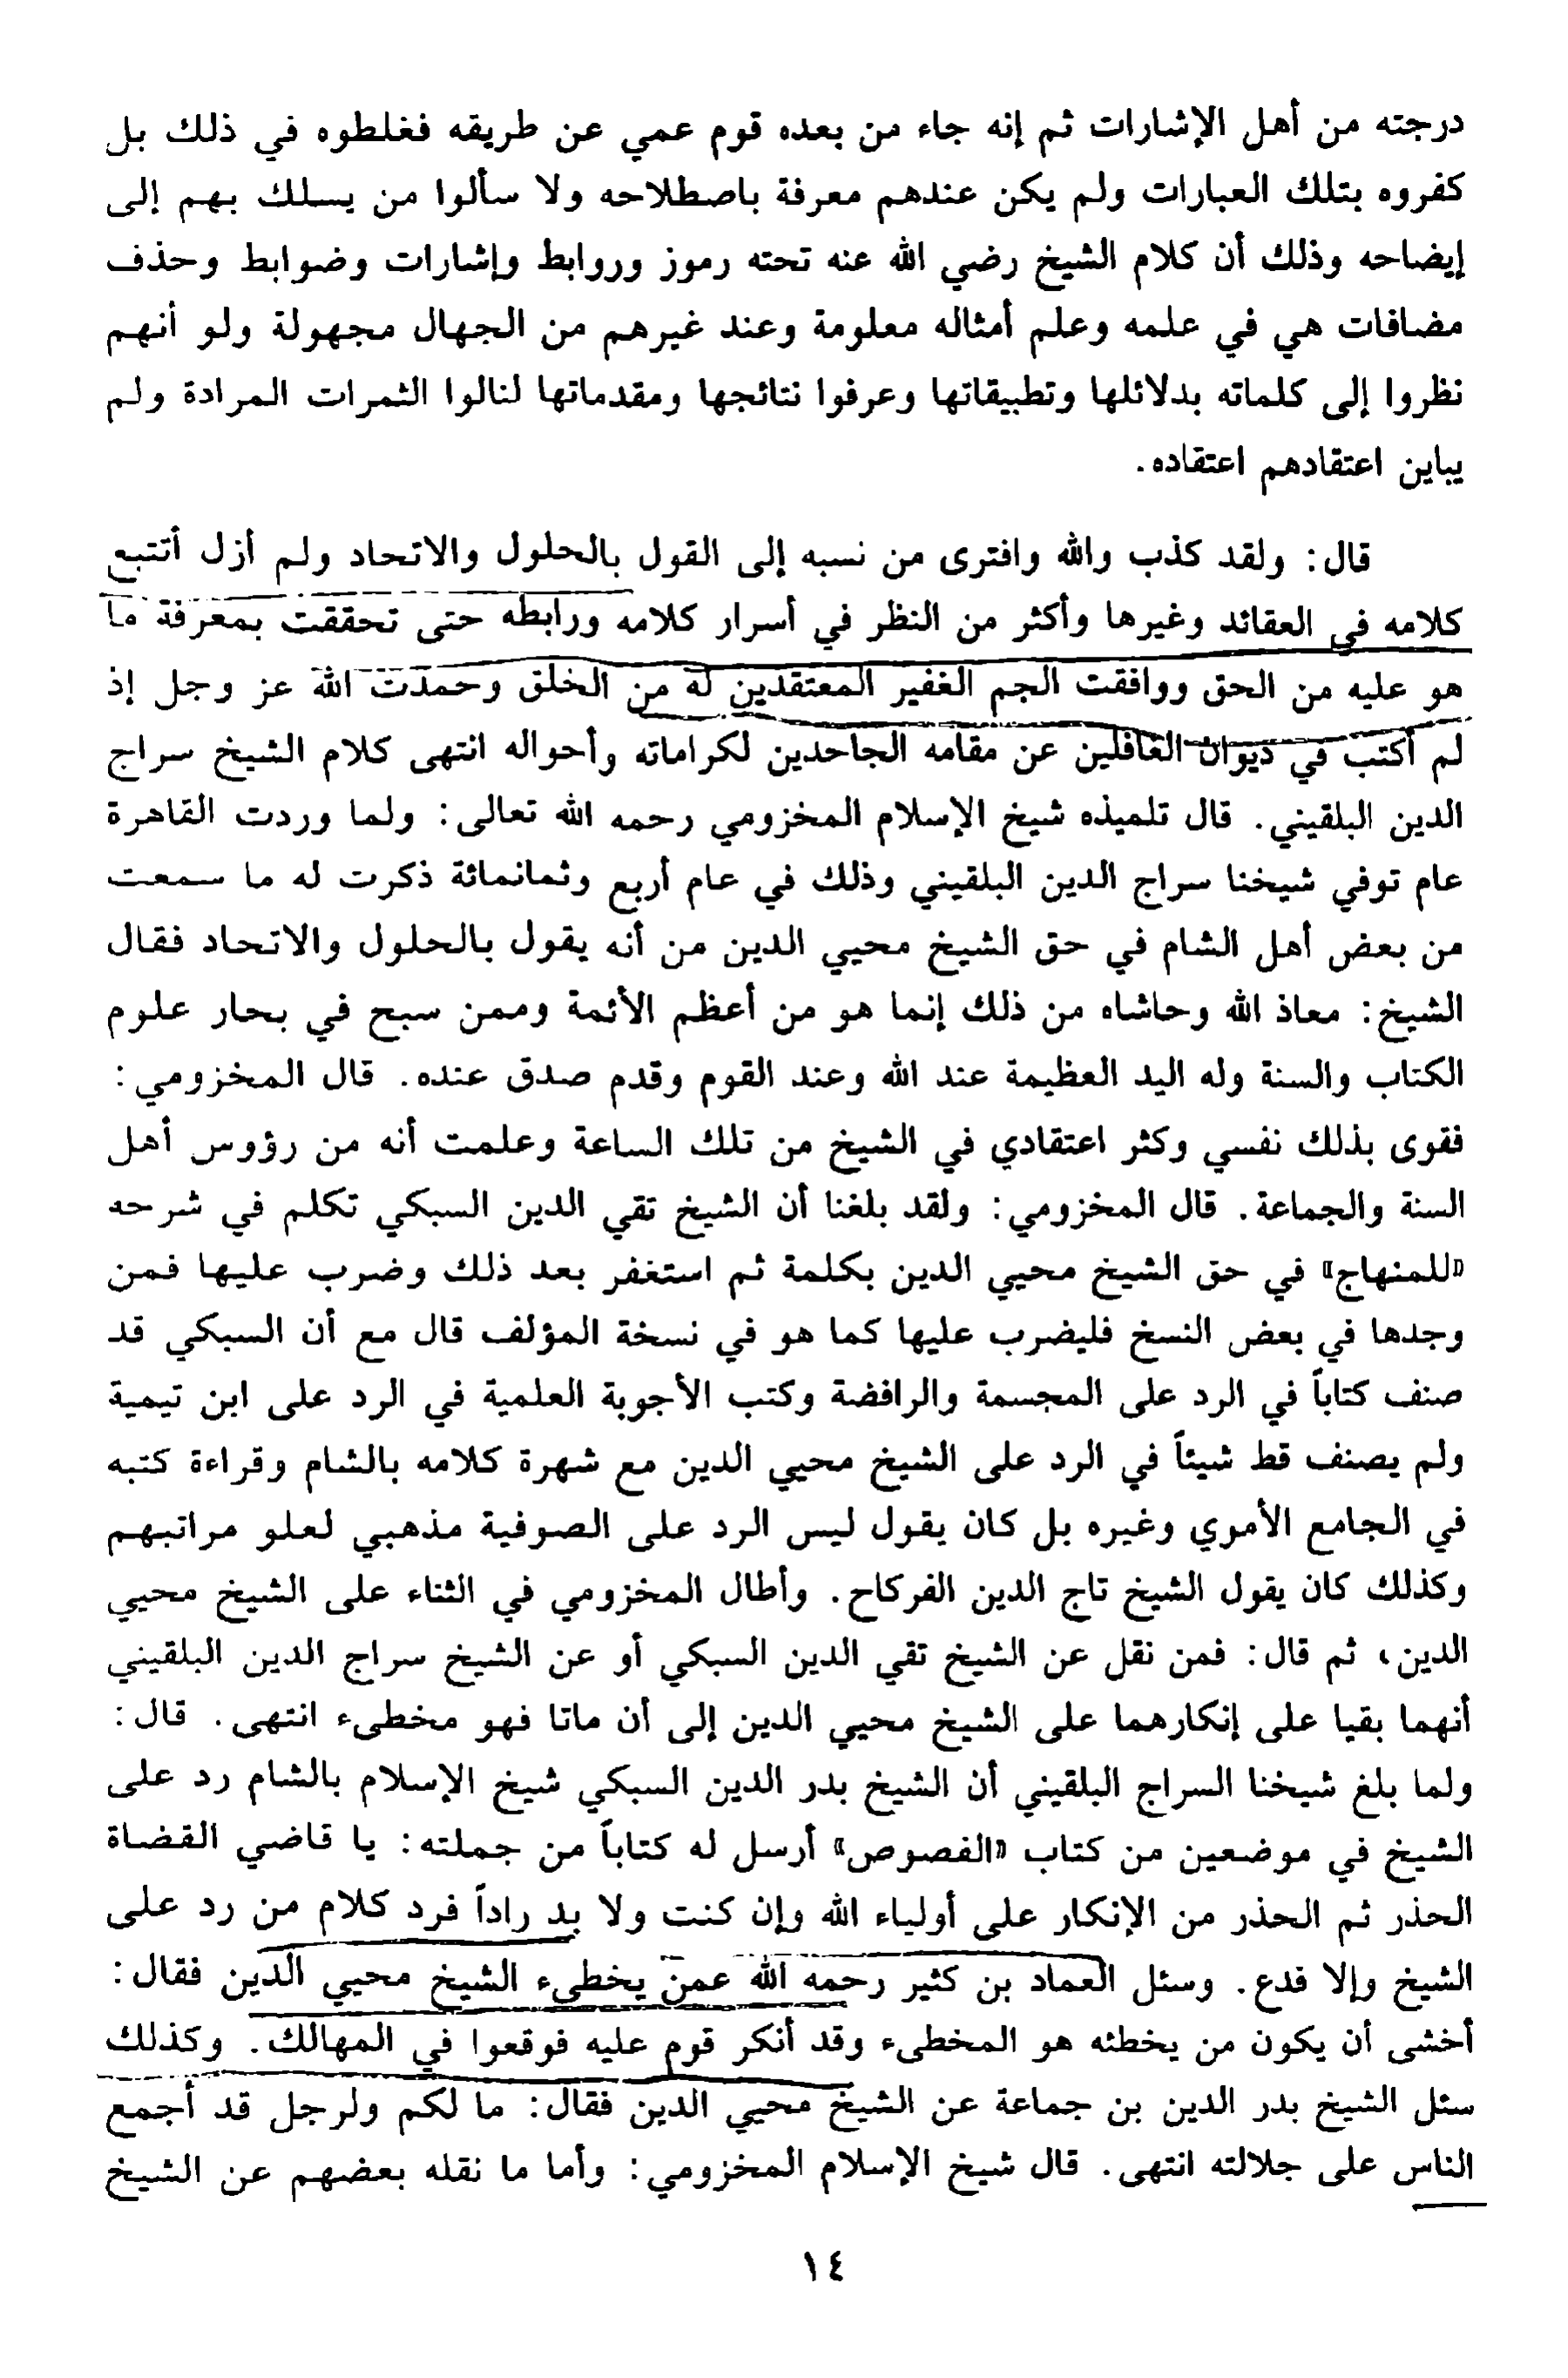 درجته من أهل الإشارات ثم إنه جاء من بعده قوم عمي عن طريقه فغلطوه في ذلك بل
كفروه بتلك العبارات ولم يكن عندهم معرفة باصطلاحه ولا سألوا من يسلك بهم إلى
إيضاحه وذلك أن كلام الشيخ رضي الله عنه تحته رموز وروابط وإشارات وضوابط وحذف
مضافات هي في علمه وعلم أمثاله معلومة وعند غيرهم من الجهال مجهولة ولو أنهم
نظروا إلى كلماته بدلائلها وتطبيقاتها وعرفوا نتائجها ومقدماتها لنالوا الثمرات المرادة ولم
يباين اعتقادهم اعتقاده.
قال: ولقد كذب والله وافترى من نسبه إلى القول بالحلول والاتحاد ولم أزل أتتبع
كلامه في العقائد وغيرها وأكثر من النظر في أسرار كلامه ورابطه حتى تحققت بمعرفة ما
هو عليه من الحق ووافقت الجم الغفير المعتقدين له من الخلق وحمدت الله عز وجل إذ
لم أكتب في ديوان الغافلين عن مقامه الجاحدين لكراماته وأحواله انتهى كلام الشيخ سراج
الدين البلقيني. قال تلميذه شيخ الإسلام المخزومي رحمه الله تعالى: ولما وردت القاهرة
عام توفي شيخنا سراج الدين البلقيني وذلك في عام أربع وثمانمائة ذكرت له ما سمعت
من بعض أهل الشام في حق الشيخ محيي الدين من أنه يقول بالحلول والاتحاد فقال
الشيخ: معاذ الله وحاشاه من ذلك إنما هو من أعظم الأئمة وممن سبح في بحار علوم
الكتاب والسنة وله اليد العظيمة عند الله وعند القوم وقدم صدق عنده. قال المخزومي:
فقوى بذلك نفسي وكثر اعتقادي في الشيخ من تلك الساعة وعلمت أنه من رؤوس أهل
السنة والجماعة. قال المخزومي: ولقد بلغنا أن الشيخ تقي الدين السبكي تكلم في شرحه
«للمنهاج» في حق الشيخ محيي الدين بكلمة ثم استغفر بعد ذلك وضرب عليها فمن
وجدها في بعض النسخ فليضرب عليها كما هو في نسخة المؤلف قال مع أن السبكي قد
صنف كتاباً في الرد على المجسمة والرافضة وكتب الأجوبة العلمية في الرد على ابن تيمية
ولم يصنف قط شيئاً في الرد على الشيخ محيي الدين مع شهرة كلامه بالشام وقراءة كتبه
في الجامع الأموي وغيره بل كان يقول ليس الرد على الصوفية مذهبي لعلو مراتبهم
وكذلك كان يقول الشيخ تاج الدين الفركاح. وأطال المخزومي في الثناء على الشيخ محيي
الدين، ثم قال: فمن نقل عن الشيخ تقي الدين السبكي أو عن الشيخ سراج الدين البلقيني
أنهما بقيا على إنكارهما على الشيخ محيي الدين إلى أن ماتا فهو مخطىء انتهى. قال:
ولما بلغ شيخنا السراج البلقيني أن الشيخ بدر الدين السبكي شيخ الإسلام بالشام رد على
الشيخ في موضعين من كتاب «الفصوص» أرسل له كتاباً من جملته: يا قاضي القضاة
الحذر ثم الحذر من الإنكار على أولياء الله وإن كنت ولا بد راداً فرد كلام من رد على
الشيخ وإلا فدع. وسئل العماد بن كثير رحمه الله عمن يخطىء الشيخ محيي الدين فقال:
أخشى أن يكون من يخطئه هو المخطىء وقد أنكر قوم عليه فوقعوا في المهالك. وكذلك
سئل الشيخ بدر الدين بن جماعة عن الشيخ محيي الدين فقال: ما لكم ولرجل قد أجمع
الناس على جلالته انتهى. قال شيخ الإسلام المخزومي: وأما ما نقله بعضهم عن الشيخ
١٤